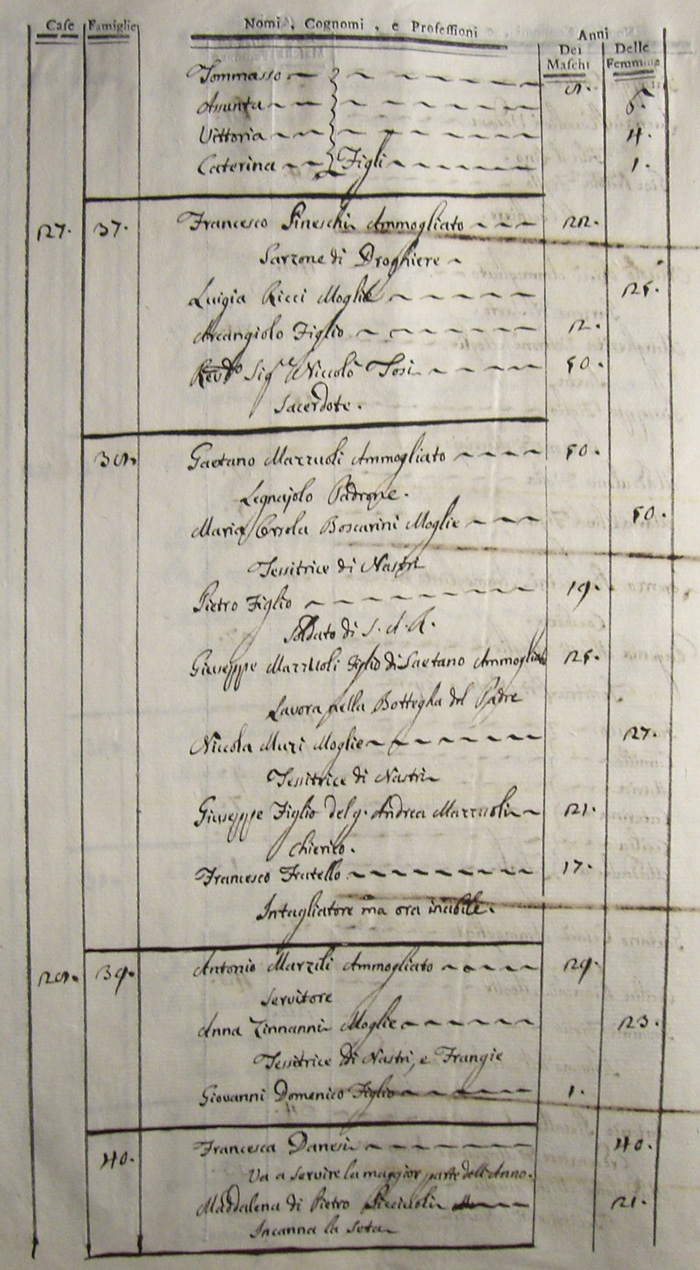 Case Famiglie Nomi, Cognomi, e Professioni Anni
Dei Maschi Delle Femmine
Tommasso 8.
Assunta 6.
Vittoria 4.
Caterina Figli 1.
27. 37. Francesco Pineschi Ammogliato 22.
Garzone di Droghiere
Luigia Ricci Moglie 25.
Arcangiolo Figlio 2.
Revdo Sigre Niccolò Tosi 50.
Sacerdote.
38. Gaetano Mazzuoli Ammogliato 50.
Legnajolo Padrone.
Maria Orsola Boscarini Moglie 50.
Tessitrice di Nastri
Pietro Figlio 19.
Soldato di S. A. R.
Giuseppe Mazzuoli Figlio di Gaetano Ammogliato 25.
Lavora nella Bottegha del Padre
Niccola Muzi Moglie 27.
Tessitrice di Nastri
Giuseppe Figlio del q. Andrea Mazzuoli 21.
Chierico.
Francesco Fratello 17.
Intagliatore ma ora inabile.
28. 39. Antonio Marzili Ammogliato 29.
Servitore
Anna Zinnanni Moglie 23.
Tessitrice di Nastri, e Frangie
Giovanni Domenico Figlio 1.
40. Francesca Danesi 40.
Va a servire la maggior parte dell'Anno.
Maddalena di Pietro 21.
Incanna la Seta